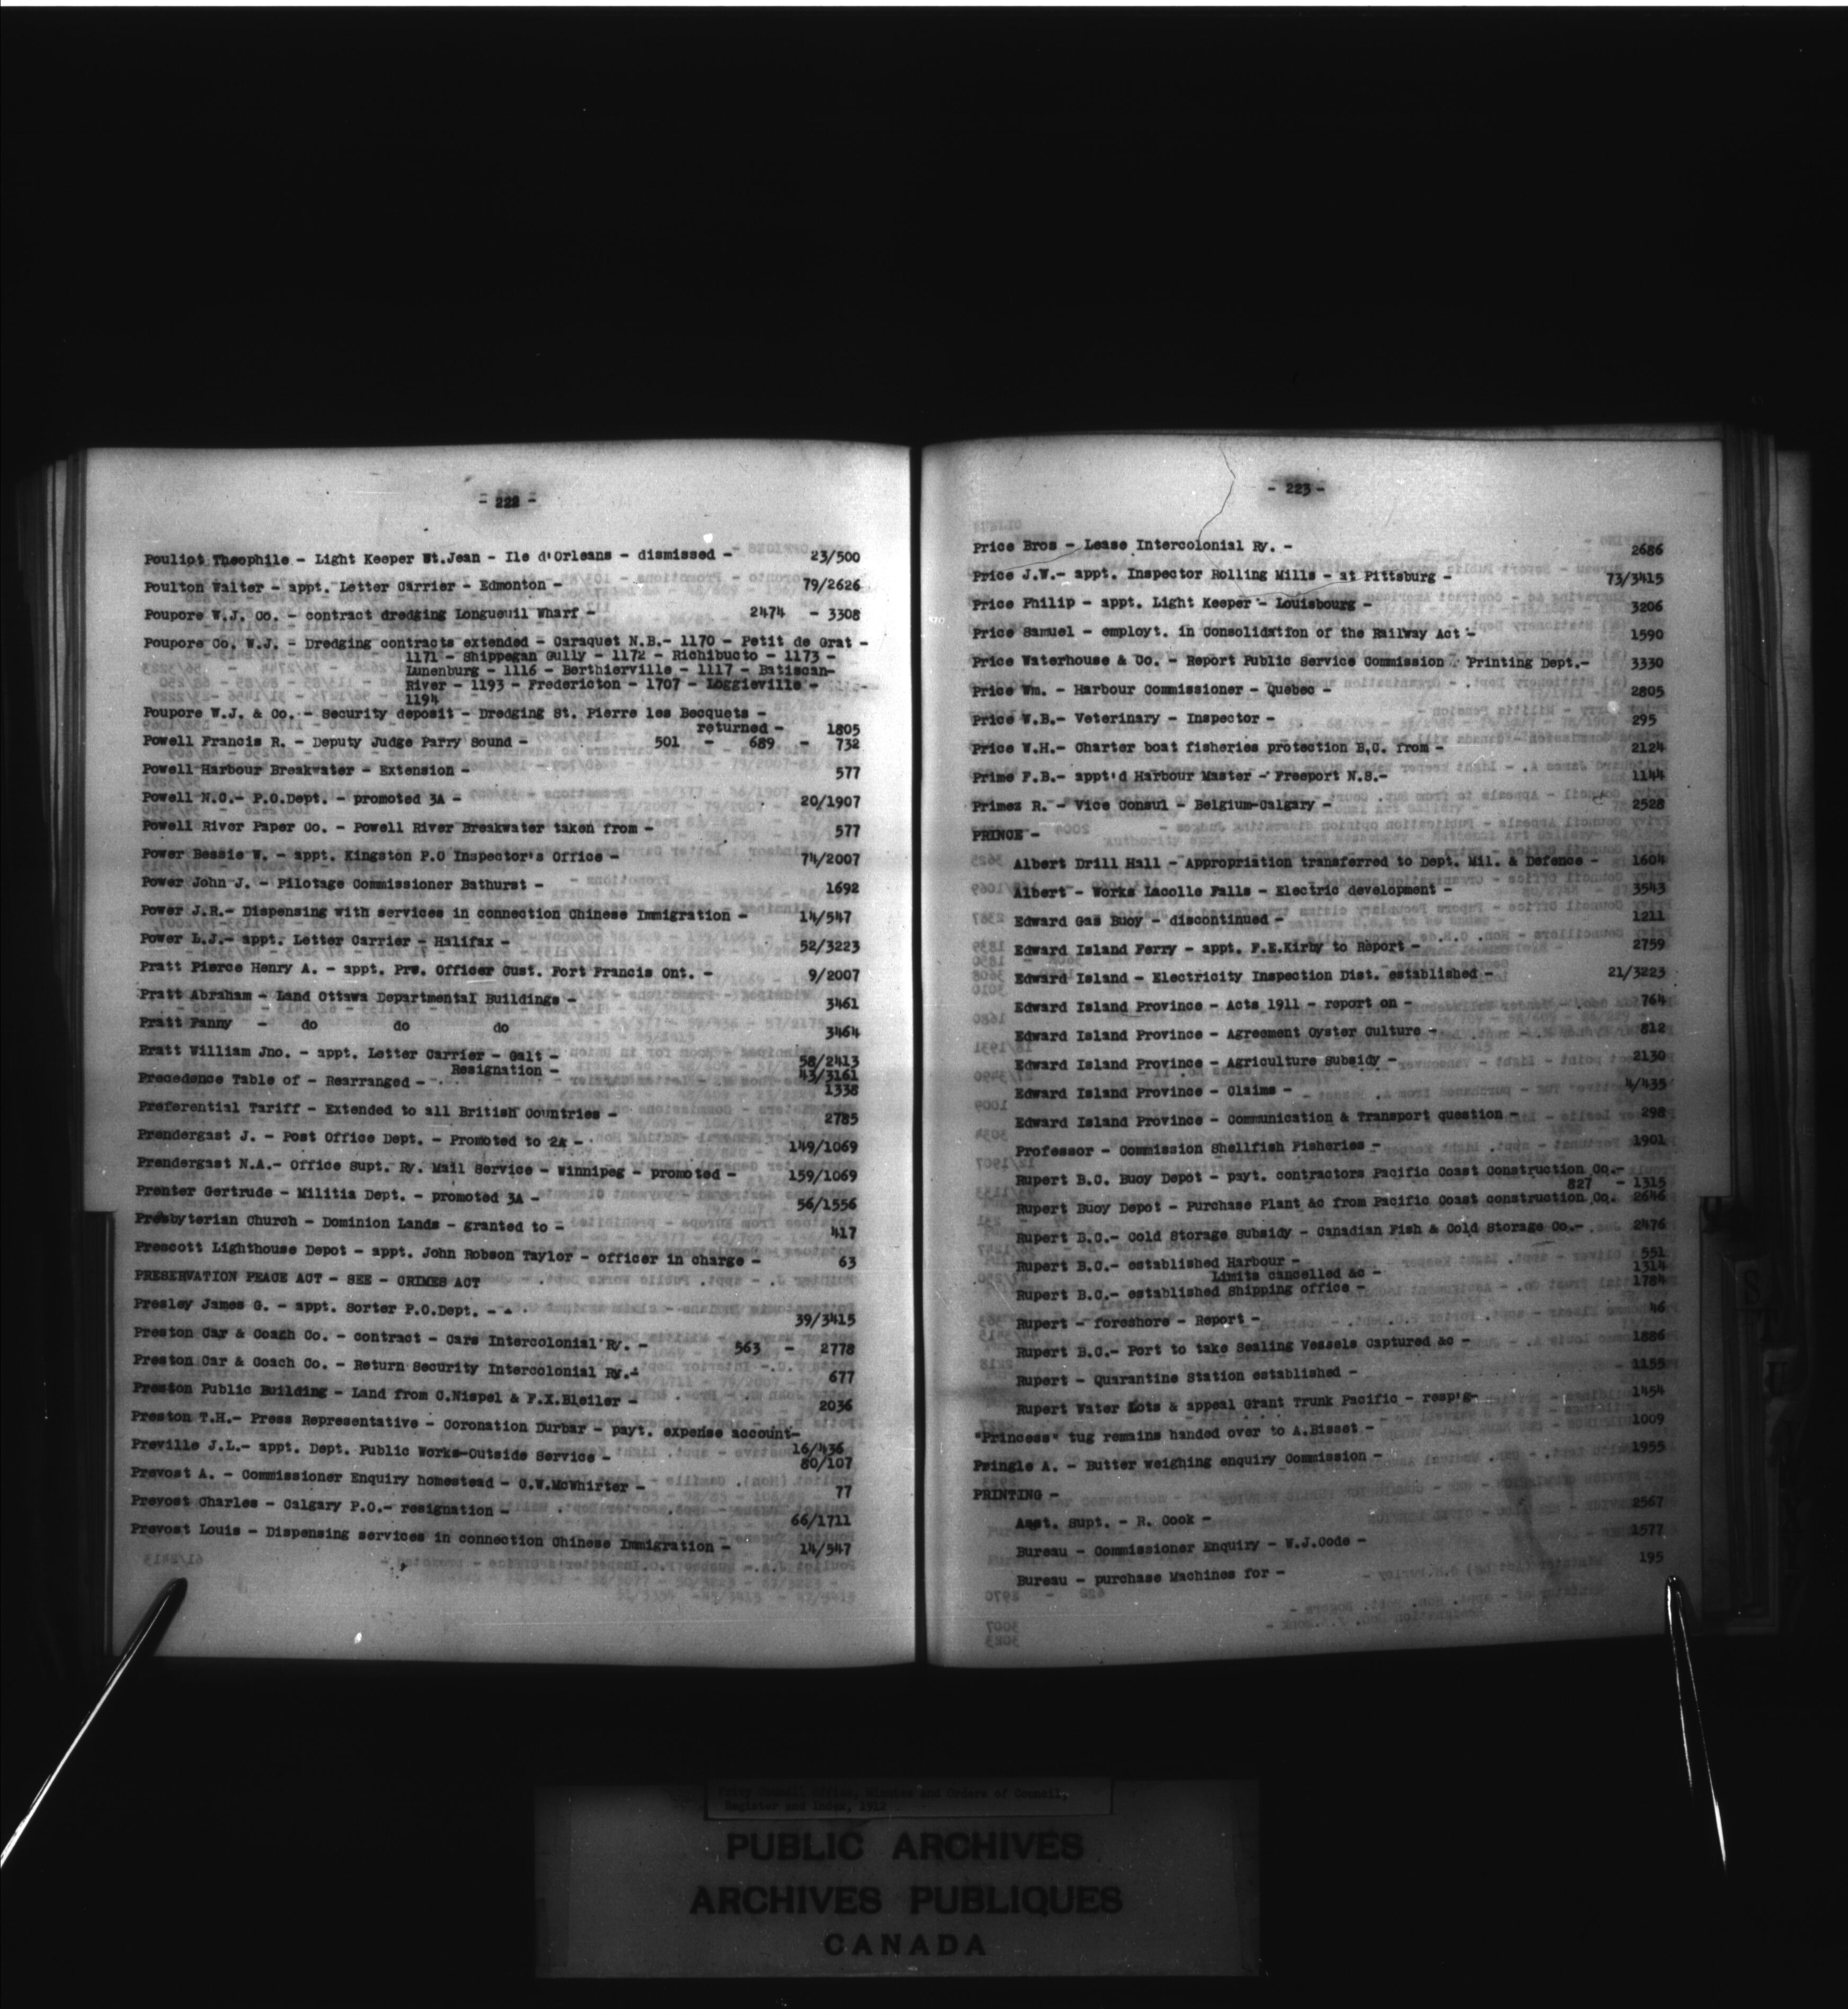 - 222 -
Pouliot Theophile - Light Keeper St.Jean - Ile d'Orleans - dismissed - 23/500
Poulton Walter - appt. Letter Carrier - Edmonton - 79/2626
Poupore W.J. Co. - contract dredging Longueuil Wharf - 2474 - 3308
Poupore Co. W.J. - Dredging contracts extended - Caraquet N.B.- 1170 - Petit de Grat -
1171 - Shippegan Gully - 1172 - Richibucto - 1173 -
Lunenburg - 1116 - Berthierville - 1117 - Batiscan-
River - 1193 - Fredericton - 1707 - Loggieville -
1194
Poupore W.J. & Co. - Security deposit - Dredging St. Pierre les Becquets -
returned - 1805
Powell Francis R. - Deputy Judge Parry Sound - 501 - 689 - 732
Powell Harbour Breakwater - Extension - 577
Powell N.C.- P.O.Dept. - promoted 3A - 20/1907
Powell River Paper Co. - Powell River Breakwater taken from - 577
Power Bessie W. - appt. Kingston P.O Inspector's Office - 74/2007
Power John J. - Pilotage Commissioner Bathurst - 1692
Power J.R.- Dispensing with services in connection Chinese Immigration - 14/547
Power L.J.- appt. Letter Carrier - Halifax - 52/3223
Pratt Pierce Henry A. - appt. Prv. Officer Cust. Fort Francis Ont. - 9/2007
Pratt Abraham - Land Ottawa Departmental Buildings - 3461
Pratt Fanny - do do do 3464
Pratt William Jno. - appt. Letter Carrier - Galt - 58/2413
Resignation - 43/3161
Precedence Table of - Rearranged - 1338
Preferential Tariff - Extended to all British Countries - 2785
Prendergast J. - Post Office Dept. - Promoted to 2A - 149/1069
Prendergast N.A.- Office Supt. Ry. Mail Service - Winnipeg - promoted - 159/1069
Prenter Gertrude - Militia Dept. - promoted 3A - 56/1556
Presbyterian Church - Dominion Lands - granted to - 417
Prescott Lighthouse Depot - appt. John Robson Taylor - officer in charge - 63
PRESERVATION PEACE ACT - SEE - CRIMES ACT
Presley James G. - appt. Sorter P.O.Dept. - - 39/3415
Preston Car & Coagh Co. - contract - Cars Intercolonial Ry. - 563 - 2778
Preston Car & Coach Co. - Return Security Intercolonial Ry.- 677
Preston Public Building - Land from C.Nispel & F.X.Bleiler - 2036
Preston T.H.- Press Representative - Coronation Durbar - payt. expense account-
16/436
Preville J.L.- appt. Dept. Public Works-Outside Service - 80/107
Prevost A. - Commissioner Enquiry homestead - C.W.McWhirter - 77
Prevost Charles - Calgary P.O.- resignation - 66/1711
Prevost Louis - Dispensing services in connection Chinese Immigration - 14/547
- 223 -
Price Bros - Lease Intercolonial Ry. - 2686
Price J.W.- appt. Inspector Rolling Mills - at Pittsburg - 73/3415
Price Philip - appt. Light Keeper - Louisbourg - 3206
Price Samuel - employt. in Consolidation of the Railway Act - 1590
Price Waterhouse & Co. - Report Public Service Commission Printing Dept.- 3330
Price Wm. - Harbour Commissioner - Quebec - 2805
Price W.B.- Veterinary - Inspector - 295
Price W.H.- Charter boat fisheries protection B.C. from - 2124
Prime F.B.- appt'd Harbour Master - Freeport N.S.- 1144
Primez R. - Vice Consul - Belgium-Calgary - 2528
PRINCE -
Albert Drill Hall - Appropriation transferred to Dept. Mil. & Defence - 1604
Albert - Works Lacolle Falls - Electric development - 3543
Edward Gas Buoy - discontinued - 1211
Edward Island Ferry - appt. F.E.Kirby to Report - 2759
Edward Island - Electricity Inspection Dist. established - 21/3223
Edward Island Province - Acts 1911 - report on - 764
Edward Island Province - Agreement Oyster Culture - 812
Edward Island Province - Agriculture Subsidy - 2130
Edward Island Province - Claims - 4/435
Edward Island Province - Communication & Transport question - 298
Professor - Commission Shellfish Fisheries - 1901
Rupert B.C. Buoy Depot - payt. contractors Pacific Coast Construction Co.-
827 - 1315
Rupert Buoy Depot - Purchase Plant &c from Pacific Coast construction Co. 2646
Rupert B.C.- Cold Storage Subsidy - Canadian Fish & Cold Storage Co.- 2476
Rupert B.C.- established Harbour - 551
Limits cancelled &c - 1314
Rupert B.C.- established Shipping office - 1784
Rupert - foreshore - Report - 46
Rupert B.C.- Port to take Sealing Vessels Captured &c - 1886
Rupert - Quarantine Station established - 1155
Rupert Water Lots & appeal Grant Trunk Pacific - resp'g- 1454
"Princess" tug remains handed over to A.Bisset - 1009
Pringle A. - Butter weighing enquiry Commission - 1955
PRINTING -
Asst. Supt. - R. Cook - 2567
Bureau - Commissioner Enquiry - W.J.Code - 1577
Bureau - purchase Machines for - 195
Privy Council Office, Minutes and Orders of Council,
Register and Index, 1912
PUBLIC ARCHIVES
ARCHIVES PUBLIQUES
CANADA